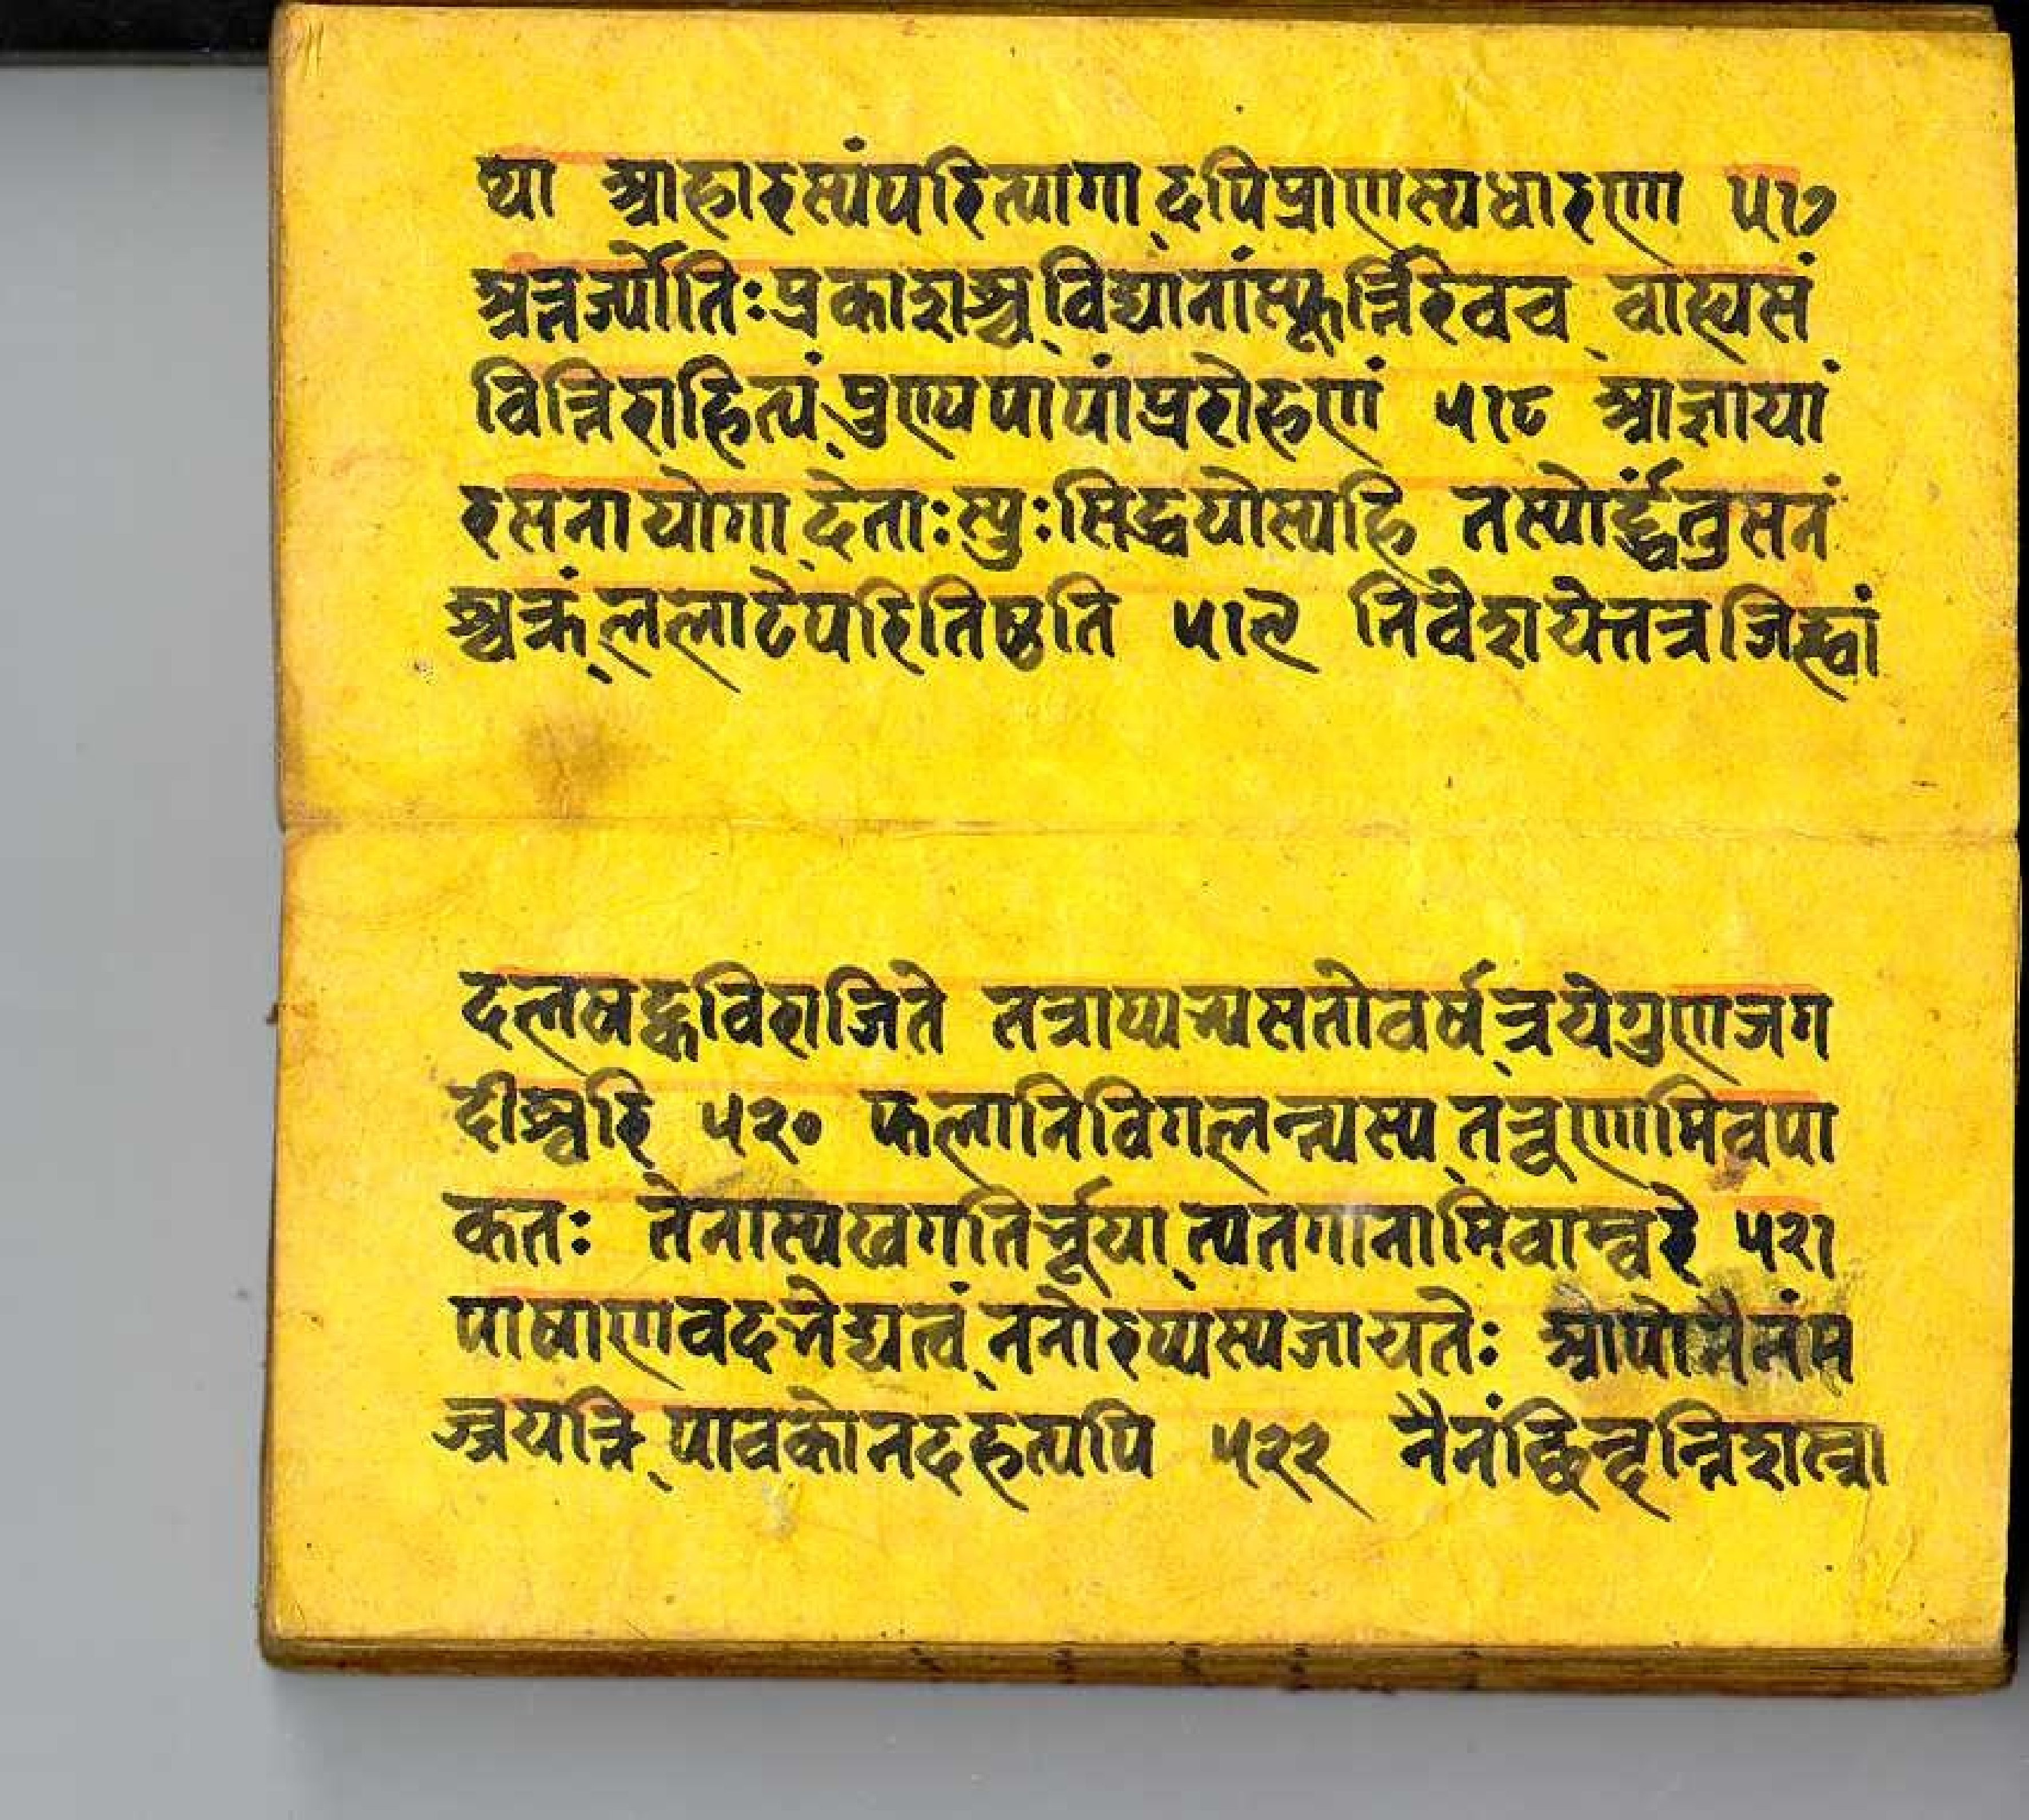 था आहारस्यंपरित्यागादपिप्राणस्यधारण ५१७
अन्तर्ज्योतिःप्रकाशश्चविद्यानांस्फूर्त्तिरेवच वाह्यसं
वित्तिराहित्यं पुण्यपापांप्ररोहणं ५१८ आज्ञायां
रसनायोगादेताःस्युःसिद्धयोस्यहि तस्योर्द्ध्वंतुसन
श्चक्रंललाटेपरितिष्ठति ५१९ निवेशयेत्तत्रजिह्वां
दलषट्कविराजिते तत्राप्यभ्यसतोवर्षत्रयेगुणजग
दीश्वरि ५२० फलानिविगलन्त्यस्य तत्तुणामिवपा
कतः तेनास्यखगतिर्भूयात्पतगानामिवाम्बरे ५२१
पाषाणवदभेद्यत्वं तनोरप्यस्यजायतेः आपोनैनंम
ज्जयन्ति पावकोनदहत्यपि ५२२ नैनंछिन्दन्तिशस्त्रा